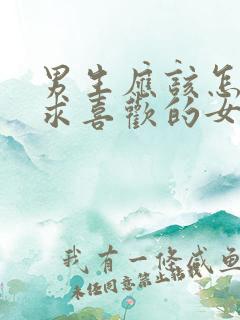 男生应该怎
求喜歡的女
我有一條咸鱼
未经同意禁止转载